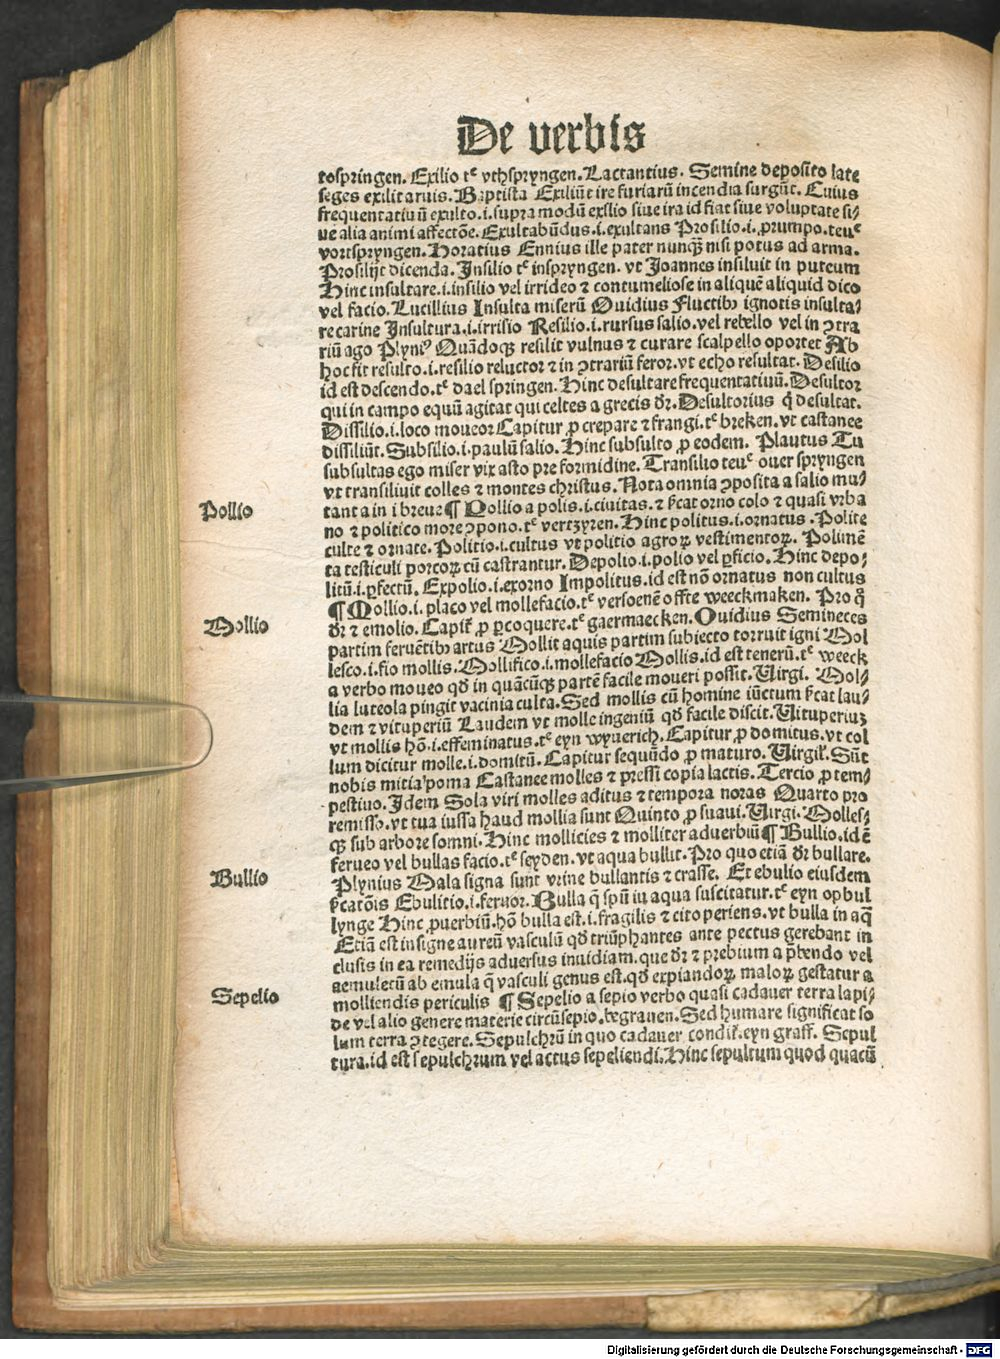 De verbis
tospringen. Exilio tᵉ vthspryngen. Lactantius. Semine deposito late
seges exilit aruis. Baptista Exiliūt ire furiarū incendia surgūt. Cuius
frequentatiuū exulto .i. supra modū exilio siue ira id fiat siue voluptate si⸗
ue alia animi affectōe. Exultabūdus .i. exultans Prosilio .i. ꝓrumpo. teuᵉ
vortspryngen. Horatius Ennius ille pater nunqꝫ nisi potus ad arma.
Prosilijt dicenda. Insilio tᵉ inspryngen. vt Joannes insiluit in puteum
Hinc insultare .i. insilio vel irrideo ⁊ contumeliose in aliquē aliquid dico
vel facio. Lucillius Insulta miserū Ouidius Fluctibꝫ ignotis insulta⸗
re carine Insultura .i. irrisio Resilio .i. rursus salio. vel rebello vel in ↄtra
riū ago Plyniꝰ Quādoqꝫ resilit vulnus ⁊ curare scalpello oportet Ab
hoc fit resulto .i. resilio reluctor ⁊ in ↄtrariū feror. vt echo resultat. Desilio
id est descendo. tᵉ dael springen. Hinc desultare frequentatiuū. Desultor
qui in campo equū agitat qui celtes a grecis dr̄. Desultorius q̄ desultat.
Dissilio .i. loco moueor Capitur ꝓ crepare ⁊ frangi. tᵉ breken. vt castanee
dissiliūt. Subsilio .i. paulū salio. Hinc subsulto ꝓ eodem. Plautus Tu
subsultas ego miser vix asto pre formidine. Transilio teuᵉ ouer spryngen
vt transiliuit colles ⁊ montes christus. Nota omnia ↄposita a salio mu⸗
Pollio
tant a in i breue ¶ Pollio a polis .i. ciuitas. ⁊ ſ̄cat orno colo ⁊ quasi vrba
no ⁊ politico more ↄpono. tᵉ vertzyren. Hinc politus .i. ornatus. Polite
culte ⁊ ornate. Politio .i. cultus vt politio agroꝝ vestimentoꝝ. Polimē
ta testiculi porcoꝝ cū castrantur. Depolio .i. polio vel ꝑficio. Hinc depo⸗
litū .i. ꝑfectū. Expolio .i. exorno Impolitus. id est nō ornatus non cultus
Mollio
¶ Mollio .i. placo vel mollefacio. tᵉ versoenē offte weeckmaken. Pro qͦ
dr̄ ⁊ emolio. Capit̄ ꝓ ꝑcoquere. tᵉ gaermaecken. Ouidius Semineces
partim feruētibꝫ artus Mollit aquis partim subiecto torruit igni Mol
lesco .i. fio mollis. Mollifico .i. mollefacio Mollis. id est tenerū. tᵉ weeck
a verbo moueo qd̄ in quācūqꝫ partē facile moueri possit. Virgi. Mol⸗
lia luteola pingit vacinia culta. Sed mollis cū homine iūctum ſ̄cat lau⸗
dem ⁊ vituperiū Laudem vt molle ingeniū qd̄ facile discit. Vituperiuꝫ
vt mollis hō .i. effeminatus. tᵉ eyn wyuerich. Capitur ꝓ domitus. vt col
lum dicitur molle .i. domitū. Capitur sequūdo ꝓ maturo. Virgil̄. Sūt
nobis mitia poma Castanee molles ⁊ pressi copia lactis. Tercio ꝓ tem⸗
pestiuo. Idem Sola viri molles aditus ⁊ tempora noras Quarto pro
remisso. vt tua iussa haud mollia sunt Quinto ꝓ suaui. Virgi. Molles⸗
qꝫ sub arbore somni. Hinc mollicies ⁊ molliter aduerbiū ¶ Bullio. id ē
Bullio
ferueo vel bullas facio. tᵉ seyden. vt aqua bullit. Pro quo etiā dr̄ bullare.
Plynius Mala signa sunt vrine bullantis ⁊ crasse. Et ebulio eiusdem
ſ̄catōis Ebulitio .i. feruor. Bulla q̄ spū in aqua suscitatur. tᵉ eyn opbul
lynge Hinc ꝓuerbiū. hō bulla est .i. fragilis ⁊ cito periens. vt bulla in aq̄
Etiā est insigne aureū vasculū qd̄ triūphantes ante pectus gerebant in
clusis in ea remedijs aduersus inuidiam. que dr̄ ⁊ prebium a p̄bendo vel
aemulectū ab emula q̄ vasculi genus est. qd̄ expiandoꝝ maloꝝ gestatur a
Sepelio
molliendis periculis ¶ Sepelio a sepio verbo quasi cadauer terra lapi⸗
de vel alio genere materie circūsepio. begrauen. Sed humare significat so
lum terra ↄtegere. Sepulchrū in quo cadauer condit̄. eyn graff. Sepul
tura. id est sepulchrum vel actus sepeliendi. Hinc sepultum quod quacū
Digitalisierung gefördert durch die Deutsche Forschungsgemeinschaft - DFG